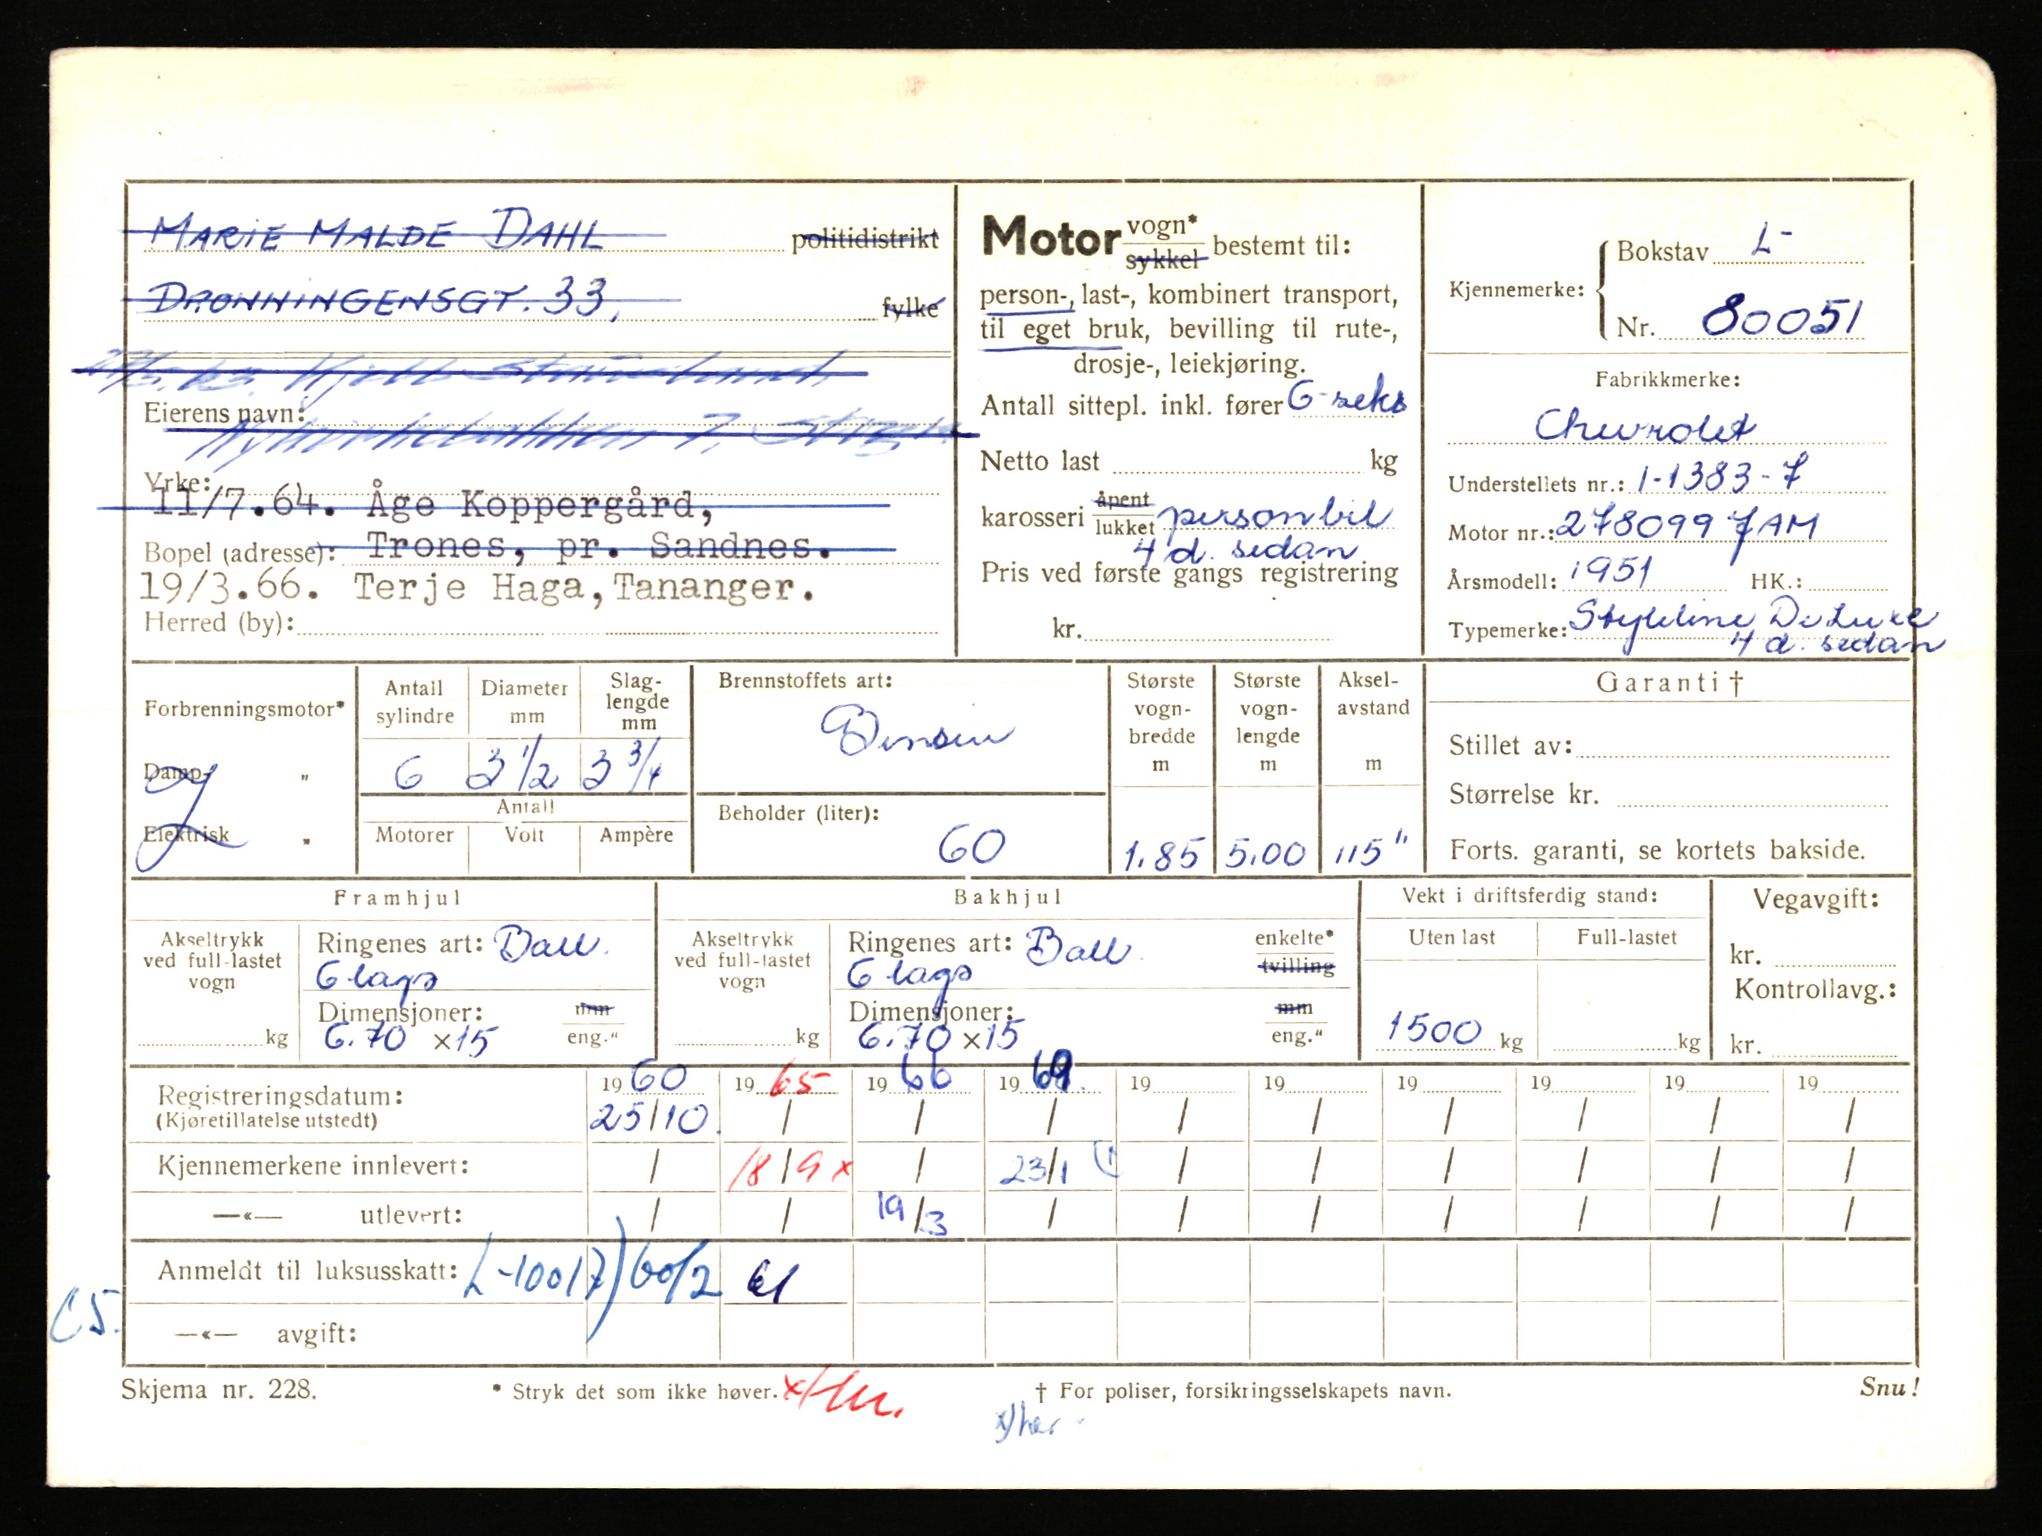 MARIE MALDE DAHL politidistrikt
DRONNINGENSGT. 33, fylke
Eierens navn:
Yrke:
11/7.64. Åge Koppergård,
Bopel (adresse): Trones, pr. Sandnes.
19/3.66. Terje Haga, Tananger.
Herred (by):
Motor vogn* sykkel bestemt til:
person-, last-, kombinert transport,
til eget bruk, bevilling til rute-,
drosje-, leiekjøring.
Antall sittepl. inkl. fører 6-seks
Netto last kg
karosseri åpent lukket personbil
4 d. sedan
Pris ved første gangs registrering
kr.
Kjennemerke: Bokstav L-
Nr. 80051
Fabrikkmerke:
Chevrolet
Understellets nr.: 1-1383-7
Motor nr.: 278099 JAM
Årsmodell: 1951 HK.:
Typemerke: Styleline De Luxe
4 d. sedan
Forbrenningsmotor*
Damp- "
Elektrisk "
Antall sylindre Diameter mm Slaglengde mm
6 3 1/2 3 3/4
Antall
Motorer Volt Ampère
Brennstoffets art:
Bensin
Beholder (liter):
60
Største vogn-bredde m
1.85
Største vogn-lengde m
5.00
Aksel-avstand m
115"
Garanti †
Stillet av:
Størrelse kr.
Forts. garanti, se kortets bakside.
Framhjul
Akseltrykk ved full-lastet vogn
kg
Ringenes art: Ball.
6 lags
Dimensjoner: mm
6.70 x15 eng."
Bakhjul
Akseltrykk ved full-lastet vogn
kg
Ringenes art: Ball. enkelte*
6 lags tvilling
Dimensjoner: mm
6.70 x15 eng."
Vekt i driftsferdig stand:
Uten last Full-lastet
1500 kg kg
Vegavgift:
kr.
Kontrollavg.:
kr.
Registreringsdatum: 19 60 19 65 19 66 19 69. 19 19 19 19 19 19
(Kjøretillatelse utstedt) 25/10. / / / / / / / / /
Kjennemerkene innlevert: / 18/9 x / 23/1 / / / / / /
—«— utlevert: / / 19/3 / / / / / / /
Anmeldt til luksusskatt: L-10017) 60/2 61
C5.
—«— avgift:
Skjema nr. 228. * Stryk det som ikke høver. † For poliser, forsikringsselskapets navn. Snu!
x) her